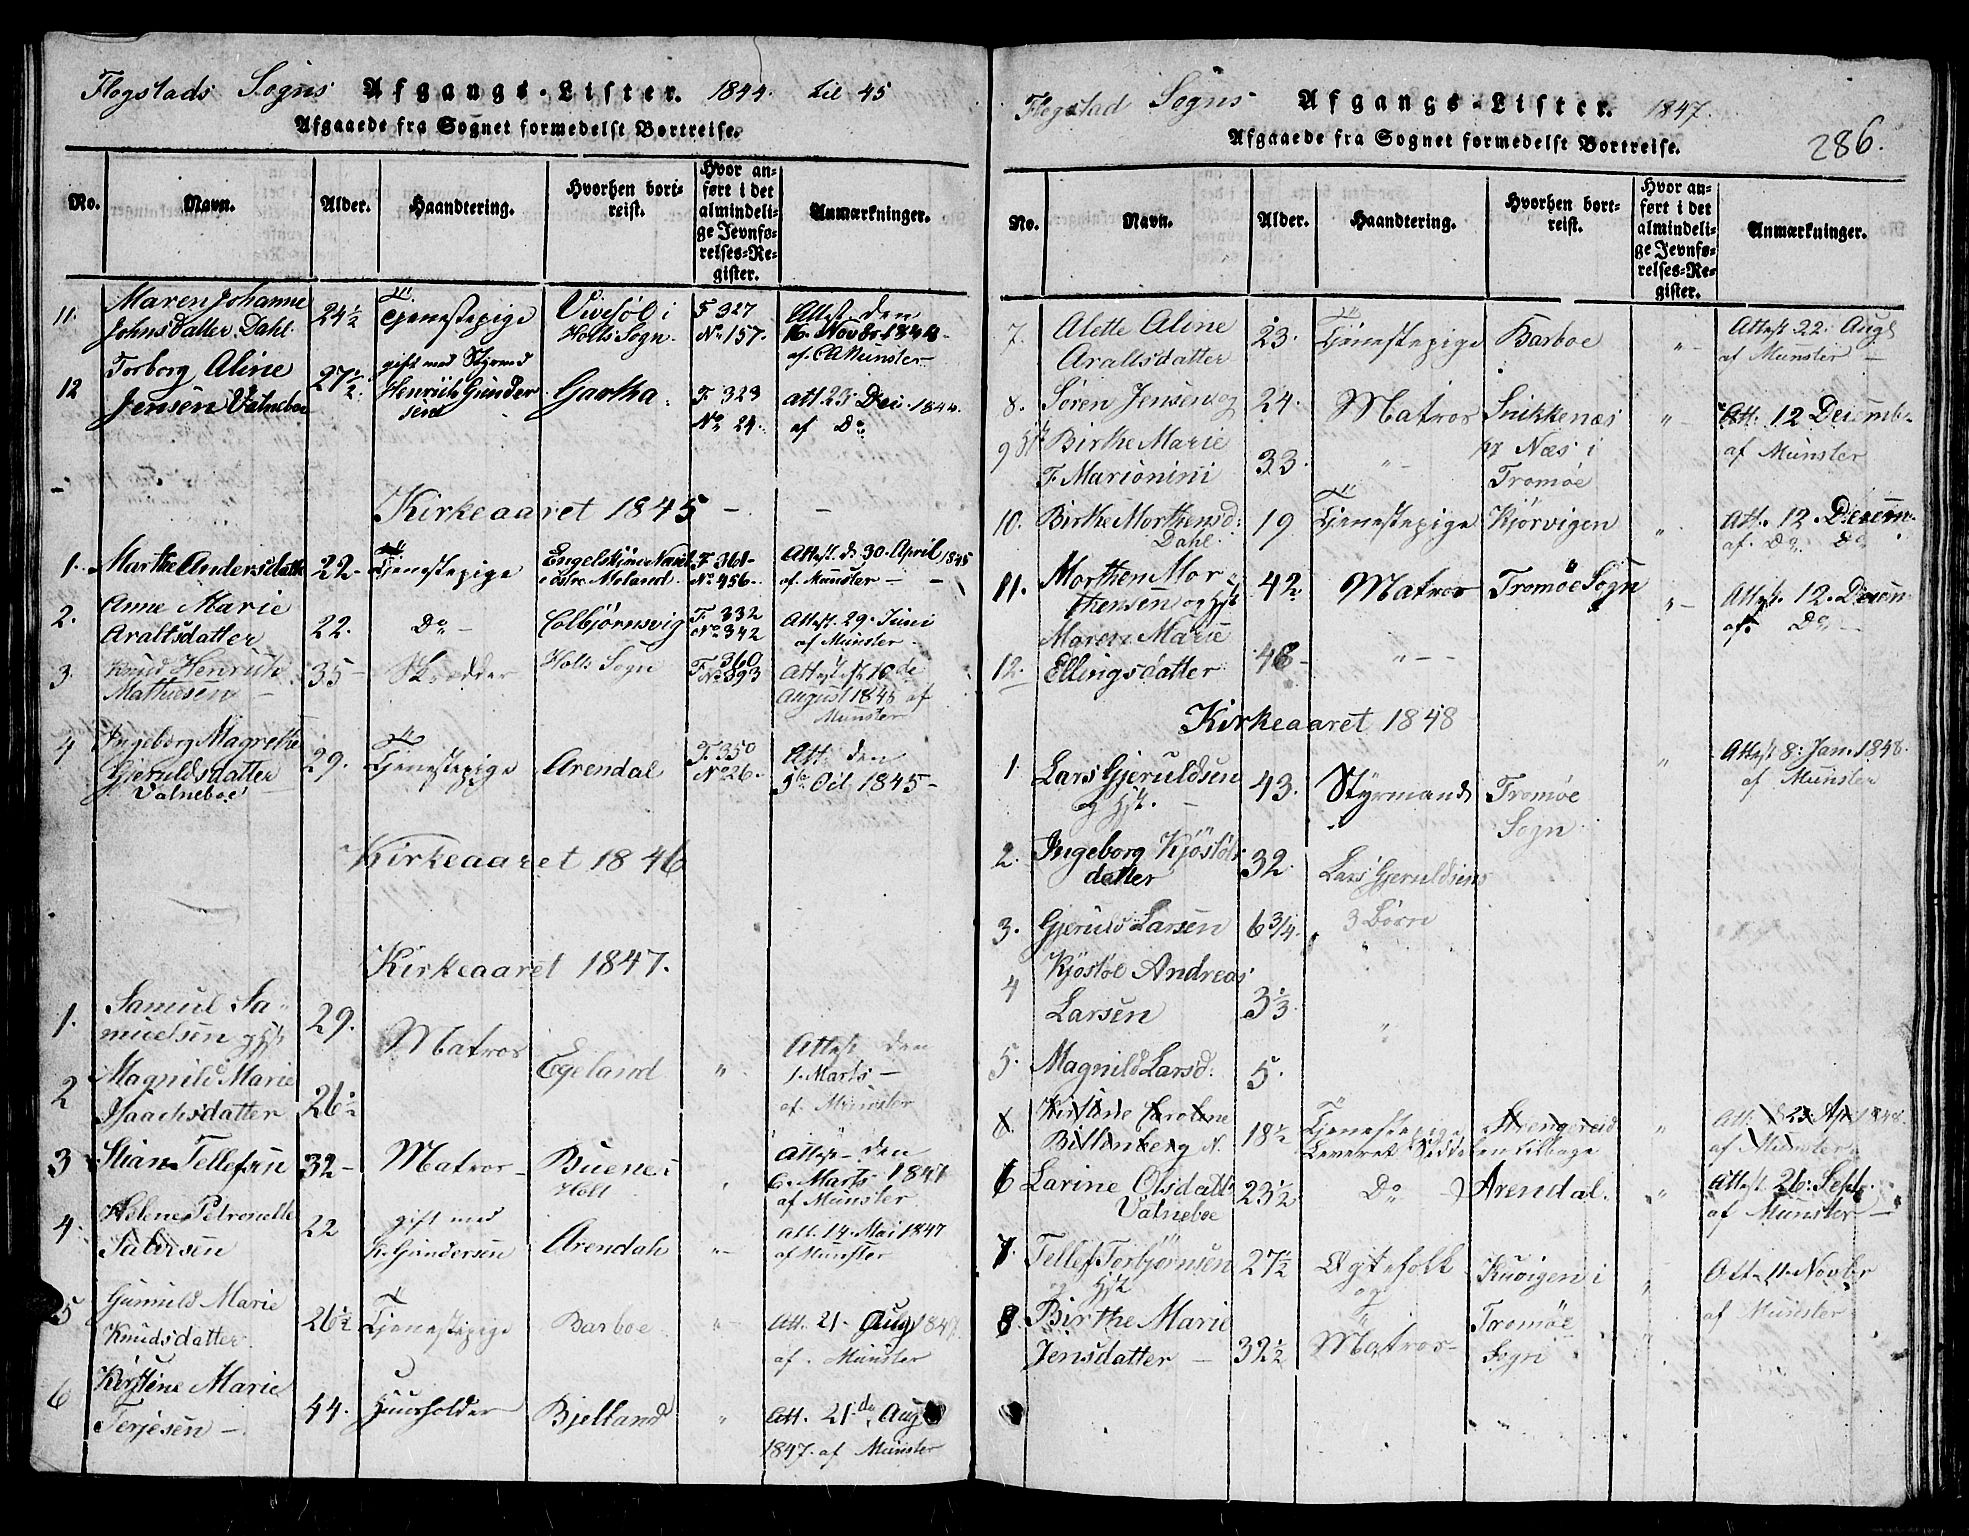 Flogstads Sogns Afgangs-Lister. 1844. til 45
Afgaaede fra Sognet formedelst Bortreise.
No. Navn. Alder. Haandtering. Hvorhen bortreist. Hvor anført i det almindelige Jevnførelses-Register. Anmærkninger.
11. Maren Johanne 24½ Tjenestepige Vivesöl i F 327 Attest den
Johnsdatter Dahl Holts Sogn. No 157. 16. Novbr 1844
af Munster
12 Torborg Aline 27½ gift med Styrmd
Jensen Valneboe Henrich Gunder Gartha. F. 323 att 23 Dec. 1844.
sen No 24. af Do
Kirkeaaret 1845
1. Marthe Andersdatt 22 Tjenestepige F. 361 Attest d. 30. April 1845
Moland. No. 456 af Munster
2. Anne Marie F. 332
Araltsdatter 22. Do Colbjörnsvig No 342 Attest 29. Juni
af Munster
3. Knud Henrich 35 Skrædder Holts Sogn F. 360 Attest
Mathiesen No 893 August 1845 af
Munster
4 Ingeborg Magrethe 29. Tjenestepige Arendal F. 350 Att. den
Gjeruldsdatter No 26. Oct. 1845
Valneboe
Kirkeaaret 1846
Kirkeaaret 1847.
1. Samuel Sa- 29.
muelsen og Hst Matros Attest den
2 Magnild Marie Egeland " 1. Marts
Isaachsdatter 26½ af Münster
3 Stian Tellefsen 32 Matros Buene i Attest den
Holt " 6. Marts 1847
af Münster
4. Helene Petronelle 22 gift med Att. 14. Mai 1847
Salvesen Gundersen Arendal " af Munster
5 Gunnild Marie 26½ Tjenestepige Barboe " Att. 21. Aug 1847.
Knudsdatter af Münster
6 Kirstine Marie 44. Huusholder Bjelland " Att. 21de Aug
Terjesen 1847. af Münster
Flogstad Sogns Afgangs-Lister. 1847.
286.
Afgaaede fra Sognet formedelst Bortreise.
No. Navn. Alder. Haandtering. Hvorhen bortreist. Hvor anført i det almindelige Jevnførelses-Register. Anmærkninger.
7. Alette Aline 23. Tjenestepige Barboe " Attest 22. Aug
Araltsdatter af Munster
8. Sören Jensen og 24. Matros Snikkenæs " Att. 12 Decemb.
9 Birthe Marie 33. " Næs i af Münster
F. Marionini Tromöe
10. Birthe Morthensd: 19 Tjenestepige Kjörvigen " Att. 12. Decem.
Dahl. af. Do Do
11. Morthen Mor- 42 Matros Tromöe Sogn " Attest. 12. Decem
thensen og Hst af. Do
Maren Marie
12. Ellingsdatter 48 "
Kirkeaaret 1848
1 Lars Gjeruldsen 43. Styrmand Tromöe " Attest 8: Jan. 1848.
og Hst. Sogn af Münster
2. Ingeborg Kjöstöls 32 Lars Gjeruldsens
datter
3. Gjeruld Larsen 6¾. 3 Börn
4 Kjöstöl Andreas "
Larsen 3⅓ "
5. Magnild Larsd. 5.
6. Kirstine Caroline 18½ Tjenestepige Strengereid " Att. d 23 Apl 1848.
Billenberg N. Leveret Seddelen tilbage af Münster
6 Larine Olsdatt 23½ Do Arendal. " Attest. 26. Sept.
Valneboe af Münster
7. Tellef Torbjörnsen 27½ Ægtefolk Kuvigen i Att. 11. Novbr
og Hst og " af Münster
8. Birthe Marie Matros Tromöe
Jensdatter 39½ Sogn "